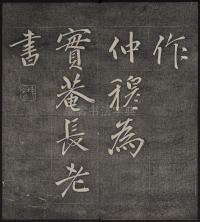 作
仲穆為
實菴長老
書